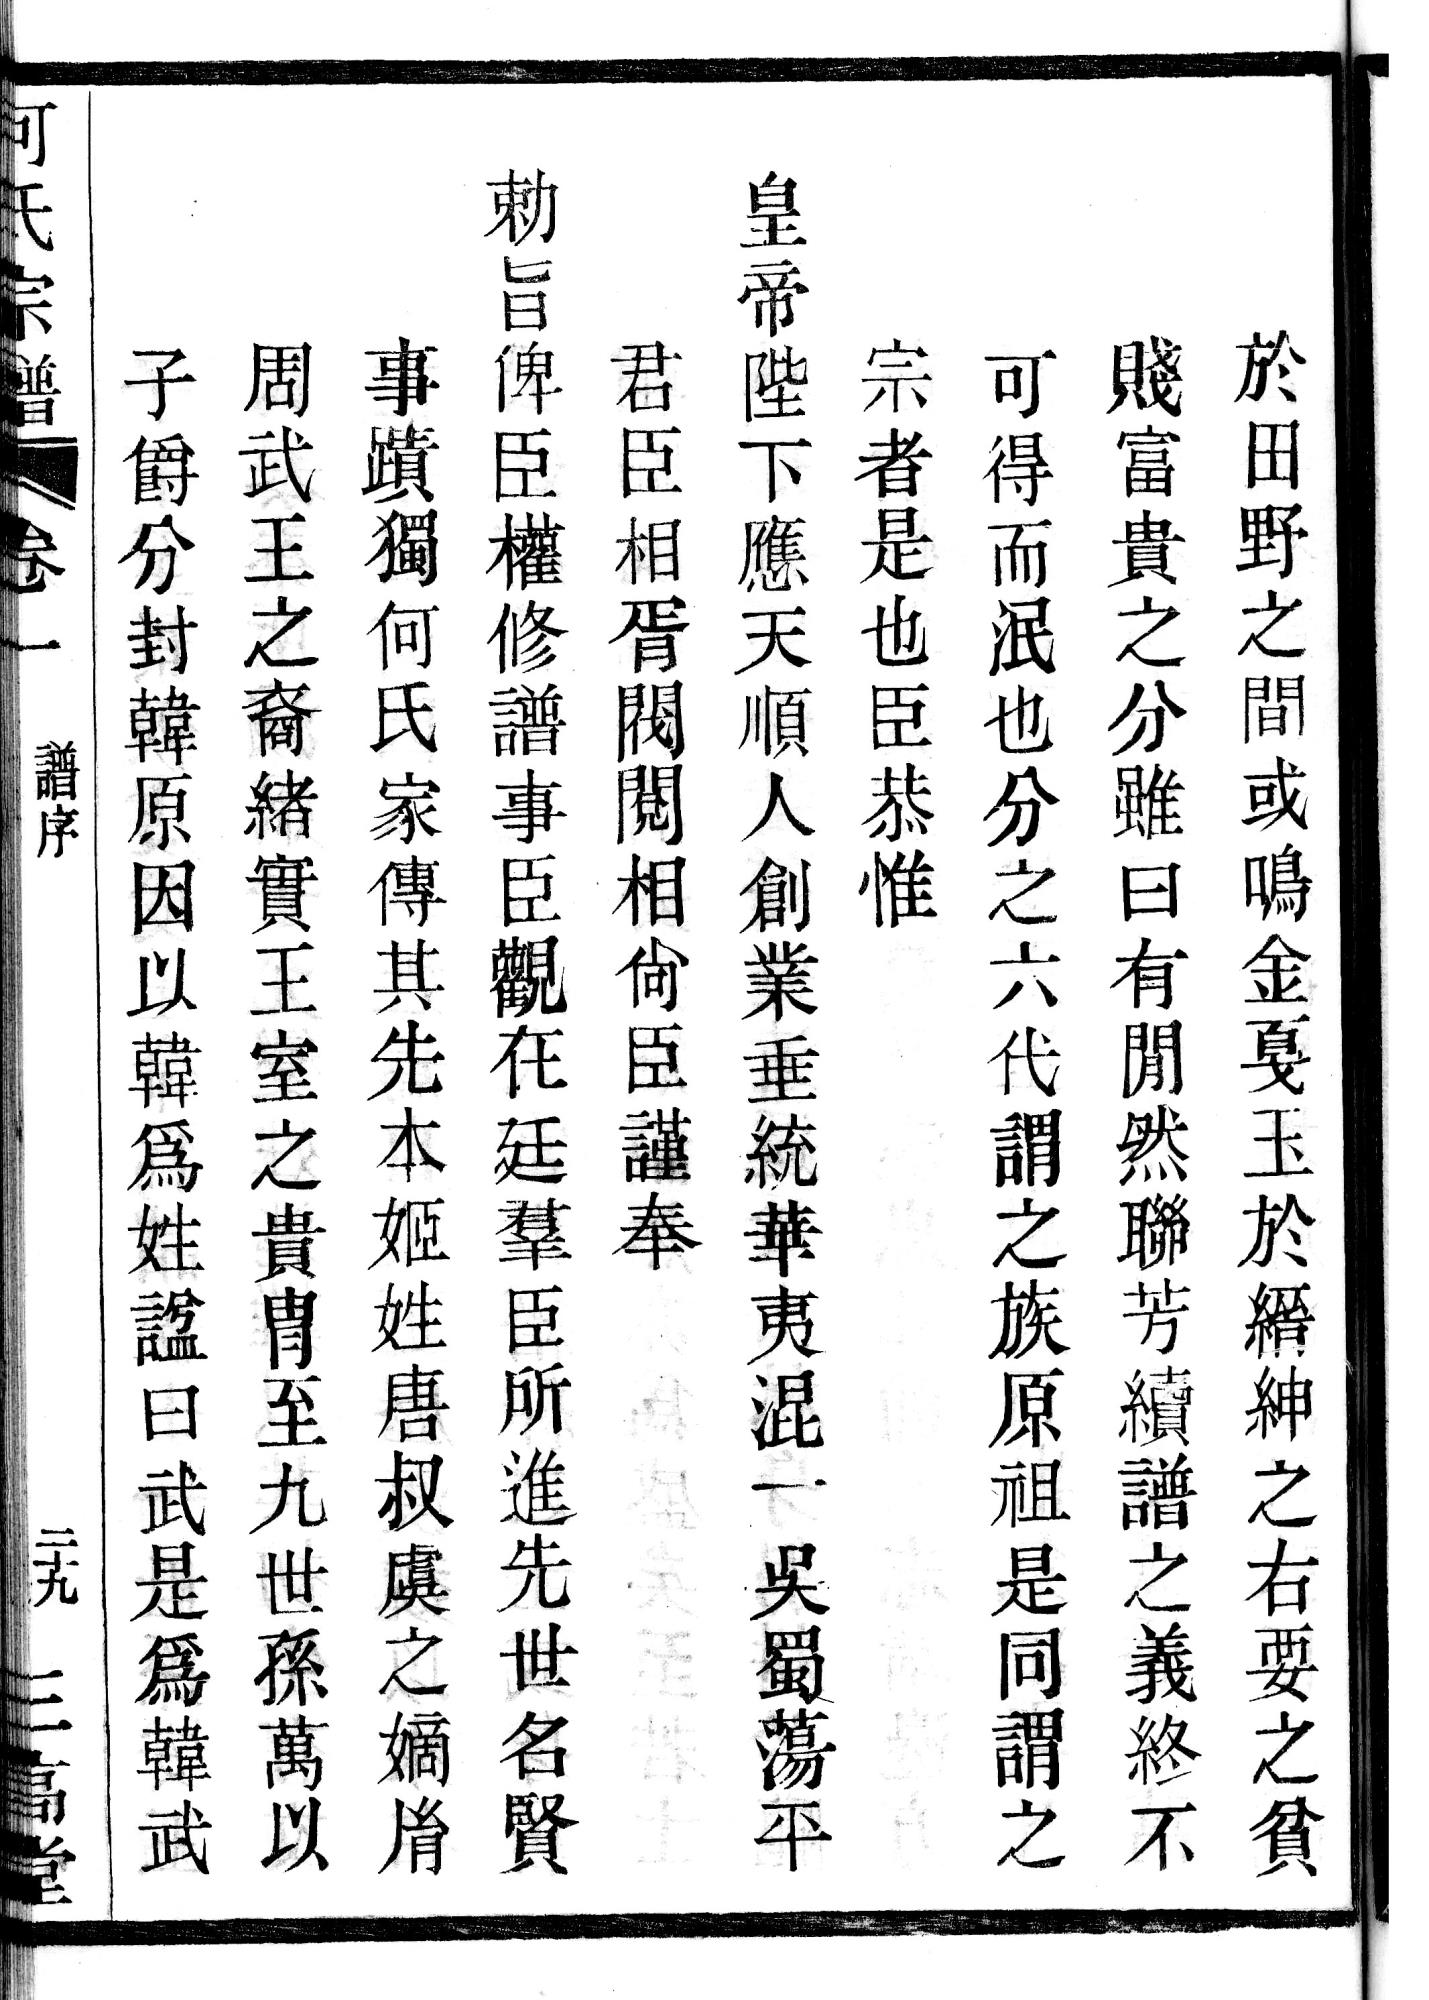 於田野之間或鳴金戛玉於縉紳之右要之貧
賤富貴之分雖曰有閒然聯芳續譜之義終不
可得而泯也分之六代謂之族原祖是同謂之
宗者是也臣恭惟
皇帝陛下應天順人創業垂統華夷混一吳蜀蕩平
君臣相胥閥閱相尙臣謹奉
勅旨俾臣權修譜事臣觀在廷羣臣所進先世名賢
事蹟獨何氏家傳其先本姬姓唐叔虞之嫡胤
周武王之裔緒實王室之貴胄至九世孫萬以
子爵分封韓原因以韓爲姓諡曰武是爲韓武
何氏宗譜 卷一 譜序 二十九 三高堂